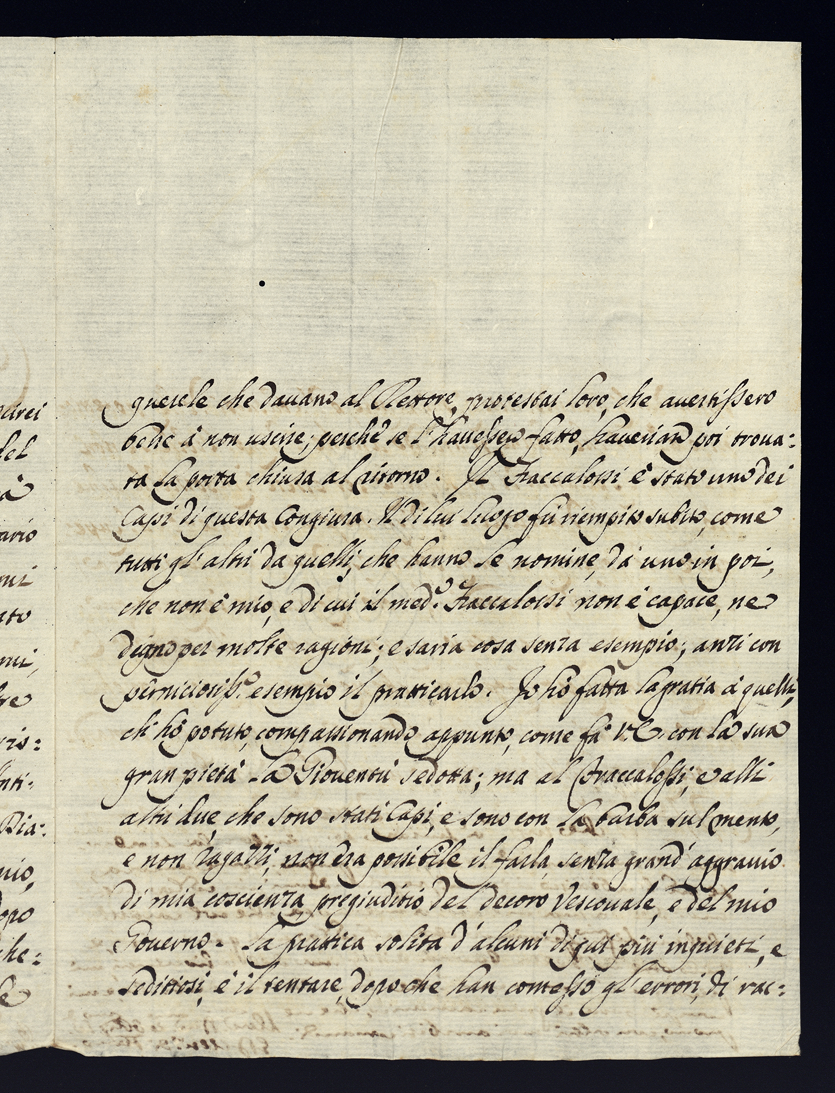 querele che davano al Rettore, protestai loro, che avertissero
bene à non uscire; perchè se l'havessero fatto, haveriano poi trova:
ta la porta chiusa al ritorno. Il Fraccalossi è stato uno dei
Capi di questa Congiura. Il di lui luogo fù riempito subito, come
tutti gl'altri da quelli, che hanno le nomine, da uno in poi,
che non è mio, e di cui il med.o Fraccalossi non è capace, ne
degno per molte ragioni; e saria cosa senza esempio; anzi con
perniciosiss.o esempio il pratticarlo. Io hò fatta la gratia à quelli,
ch'hò potuto, compassionando appunto, come fà V.E. con la sua
gran pietà la Gioventù sedotta; ma al Braccalossi, e alli
altri due, che sono stati Capi, e sono con la barba sul mento,
e non ragazzi, non era possibile il farla senza grand'aggravio
di mia coscienza, pregiuditio del decoro Vescovale, e del mio
Governo. La prattica solita d'alcuni di qui più inquieti, e
seditiosi, è il tentare, dopo che han comesso gl'errori, di rac:
ra:
del
à
ario
ato
tre
vis:
nti:
Dia:
nio,
opo
che:
le